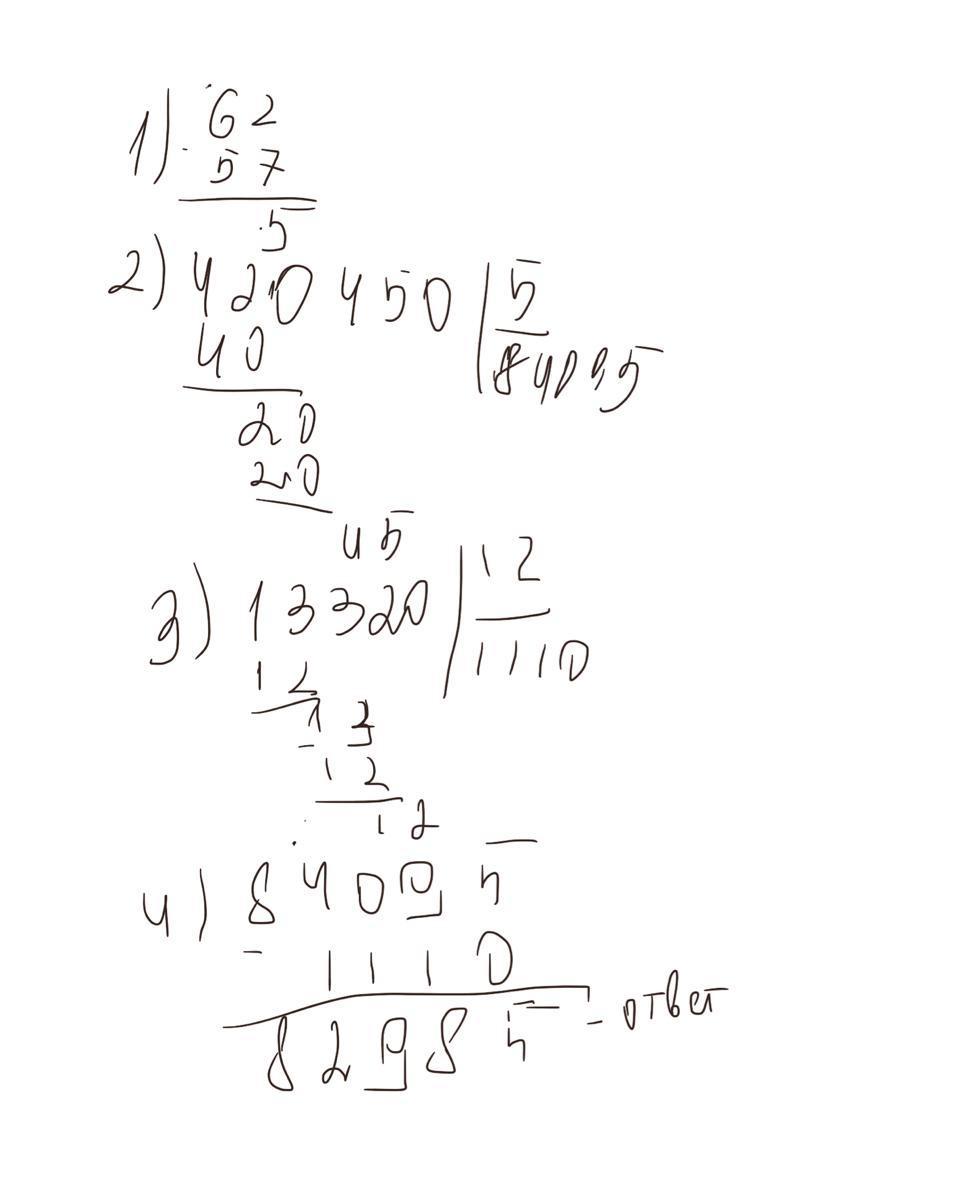 1) 62
- 57
5
2) 420 450 | 5
40 84095
20
20
45
3) 13320 | 12
12 1110
- 13
12
12
4) 84095
- 1110
82985 - ответ